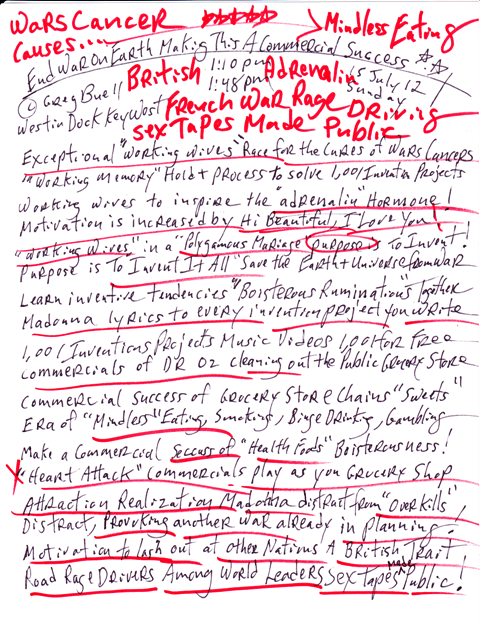 WARS CANCER
Mindless Eating
Causes...
End War On Earth Making This A Commercial Success
British 1:10 pm Adrenalin 15 July 12
© Greg Buell 1:48 pm Sunday
Westin Dock Key West French War Rage Driving
Sex Tapes Made Public
Exceptional "Working Wives" Race for the Cures of Wars Cancers
"Working Memory" Hold + Process to solve 1,001 Invention Projects
Working Wives to inspire the "adrenalin" Hormone!
Motivation is increased by Hi Beautiful, I Love You!
"Working Wives" in a "Polygamous Mariage" purpose is To Invent!
Purpose is To Invent It All "Save the Earth + Universe from War
Learn inventive Tendencies "Boisterous Ruminations" Together
Madonna lyrics to every invention project you write
1,001 Inventions Projects Music Videos 1,001 for Free
Commercials of DR OZ cleaning out the Public Grocery Store
Commercial Success of Grocery Store Chains "Sweets"
Era of "Mindless" Eating, Smoking, Binge Drinking, Gambling
Make a Commercial Seccuss of "Health Foods" Boisterousness!
X "Heart Attack" Commercials play as you Grocery Shop
Attraction Realization Madonna distract from "Over Kills",
Distract, Provoking another War already in planning.
Motivation to lash out at other Nations A British Trait!
Road Rage Drivers Among World Leaders Sex Tapes made Public!